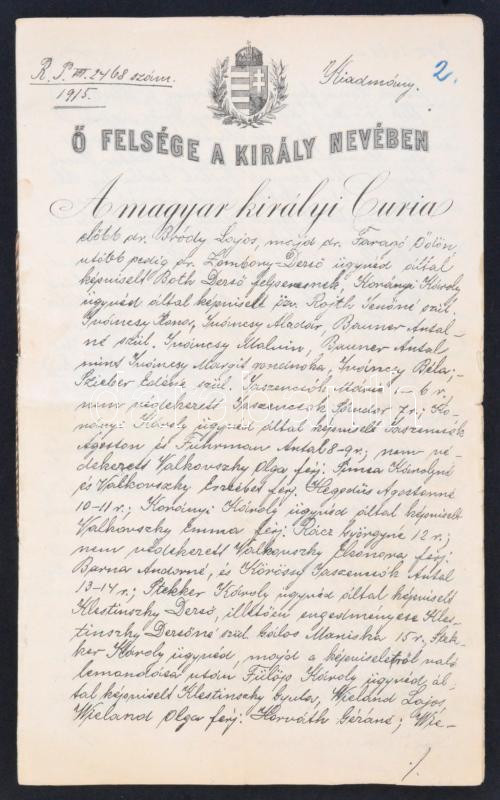 R. P. VII. 2468 szám.
1915.
Kiadmány.
2.
Ő FELSÉGE A KIRÁLY NEVÉBEN
A magyar királyi Curia
előbb dr. Bródy Lajos, majd dr. Faragó Ödön
utóbb pedig dr. Zombory Dezső ügyvéd által
képviselt Both Dezső felperesnek, Korányi Károly
ügyvéd által képviselt özv. Jenőné szül.
Ivánczy Ilona, Ivánczy Aladár, Bauner Antal-
né szül. Ivánczy Malvin, Bauner Antal
mint Ivánczy Margit gondnoka, Ivánczy Béla,
szül. Jaszencsák Mária 1-6 r.
nem védekezett Jaszencsák Sándor 7 r.; Ko-
rányi Károly ügyvéd által képviselt Jaszencsák
Ágoston és Fuhrman Antal 8-9 r.; nem vé-
dekezett Valkovszky Olga férj. Károlyné
és Valkovszky Erzsébet férj. Hegedüs Ágostonné
10-11 r.; Korányi Károly ügyvéd által képviselt
Valkovszky Emma férj. Rácz Györgyné 12 r.;
nem védekezett Valkovszky Eleonora férj.
Barna Andorné, és Kőrössy Jaszencsák Antal
13-14 r.; Stekker Károly ügyvéd által képviselt
Klestinszky Dezső, illetően engedményese Kles-
tinszky Dezsőné szül. Mariska 15 r. Stek-
ker Károly ügyvéd, majd a képviselettől való
lemondása után Fülöp Károly ügyvéd ál-
tal képviselt Klestinszky Gyula, Wieland Lajos,
Wieland Olga férj. Horváth Gézáné; Wie-
./.